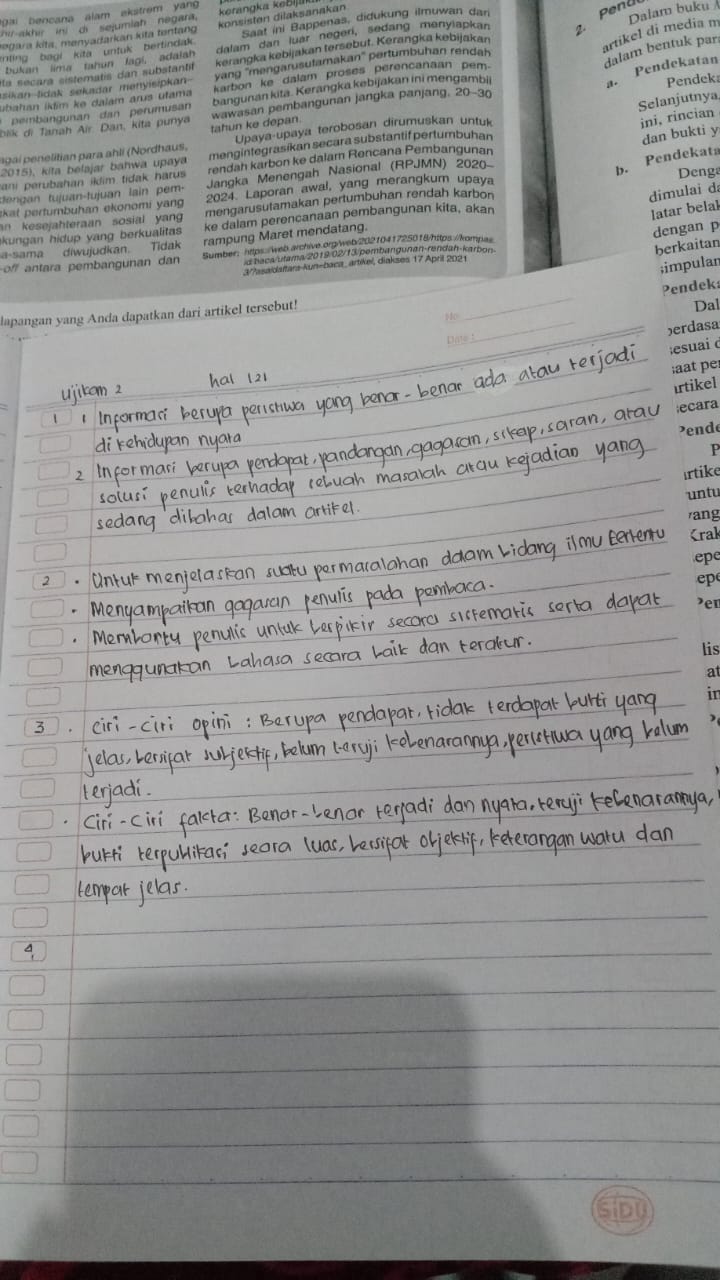 gai bencana alam ekstrem yang
hir-akhir ini di sejumlah negara,
egara kita, menyadarkan kita tentang
nting bagi kita untuk bertindak.
bukan lima tahun lagi, adalah
ita secara sistematis dan substantif
asikan–tidak sekadar menyisipkan–
ubahan iklim ke dalam arus utama
pembangunan dan perumusan
blik di Tanah Air. Dan, kita punya
agai penelitian para ahli (Nordhaus,
2015), kita belajar bahwa upaya
ani perubahan iklim tidak harus
dengan tujuan-tujuan lain pem-
kat pertumbuhan ekonomi yang
an kesejahteraan sosial yang
kungan hidup yang berkualitas
a-sama diwujudkan. Tidak
-off antara pembangunan dan
kerangka kebijakan
konsisten dilaksanakan.
Saat ini Bappenas, didukung ilmuwan dari
dalam dan luar negeri, sedang menyiapkan
kerangka kebijakan tersebut. Kerangka kebijakan
yang "mengarusutamakan" pertumbuhan rendah
karbon ke dalam proses perencanaan pem-
bangunan kita. Kerangka kebijakan ini mengambil
wawasan pembangunan jangka panjang, 20–30
tahun ke depan.
Upaya-upaya terobosan dirumuskan untuk
mengintegrasikan secara substantif pertumbuhan
rendah karbon ke dalam Rencana Pembangunan
Jangka Menengah Nasional (RPJMN) 2020–
2024. Laporan awal, yang merangkum upaya
mengarusutamakan pertumbuhan rendah karbon
ke dalam perencanaan pembangunan kita, akan
rampung Maret mendatang.
Sumber: https://web.archive.org/web/2021041725018/https://kompas.
id/baca/utama/2019/02/13/pembangunan-rendah-karbon-
diakses 17 April 2021
lapangan yang Anda dapatkan dari artikel tersebut!
2.
Dalam buku
artikel di media m
dalam bentuk par
a. Pendekatan
Pendek
Selanjutnya
ini, rincian
dan bukti y
b. Pendekata
Denga
dimulai da
latar belak
dengan p
berkaitan
simpulan
Pendeka
Dal
berdasa
sesuai d
saat pe
artikel
secara
Pende
P
artike
untu
rang
Krak
epe
epe
Pen
lis
at
in
No.
Date :
Ujikom 2 hal 121
1 1 Informasi berupa peristiwa yang benar-benar ada atau terjadi
di kehidupan nyata
2 Informasi berupa pendapat, pandangan, gagasan, sikap, saran, atau
solusi penulis terhadap sebuah masalah atau kejadian yang
sedang dibahas dalam artikel.
2 • Untuk menjelaskan suatu permasalahan dalam bidang ilmu tertentu
• Menyampaikan gagasan penulis pada pembaca.
• Membantu penulis untuk berpikir secara sistematis serta dapat
menggunakan bahasa secara baik dan teratur.
3 • Ciri-ciri opini : Berupa pendapat, tidak terdapat bukti yang
jelas, bersifat subjektif, belum teruji kebenarannya, peristiwa yang belum
terjadi.
• Ciri-ciri fakta: Benar-benar terjadi dan nyata, teruji kebenarannya,
bukti terpublikasi seara luas, bersifat objektif, keterangan watu dan
tempat jelas.
4
SIDU